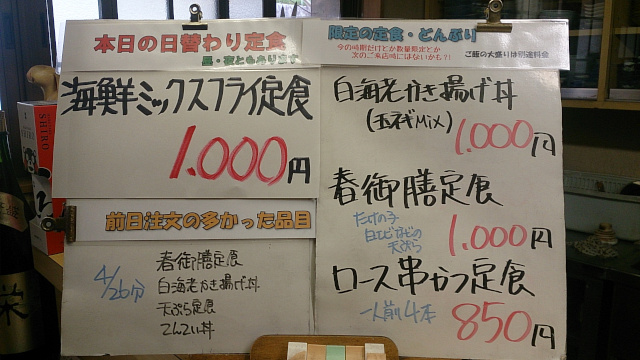 本日の日替わり定食
昼・夜ともあります
海鮮ミックスフライ定食
1.000円
前日注文の多かった品目
4/26分
春御膳定食
白海老かき揚げ丼
天ぷら定食
てんてい丼
限定の定食・どんぶり
今の時期だけとか数量限定とか
次のご来店時にはないかも?!
ご飯の大盛りは別途料金
白海老かき揚げ丼
(玉ネギMix)
1.000円
春御膳定食
たけの子
白エビなどの
天ぷら
1.000円
ロース串かつ定食
一人前4本
850円
栄